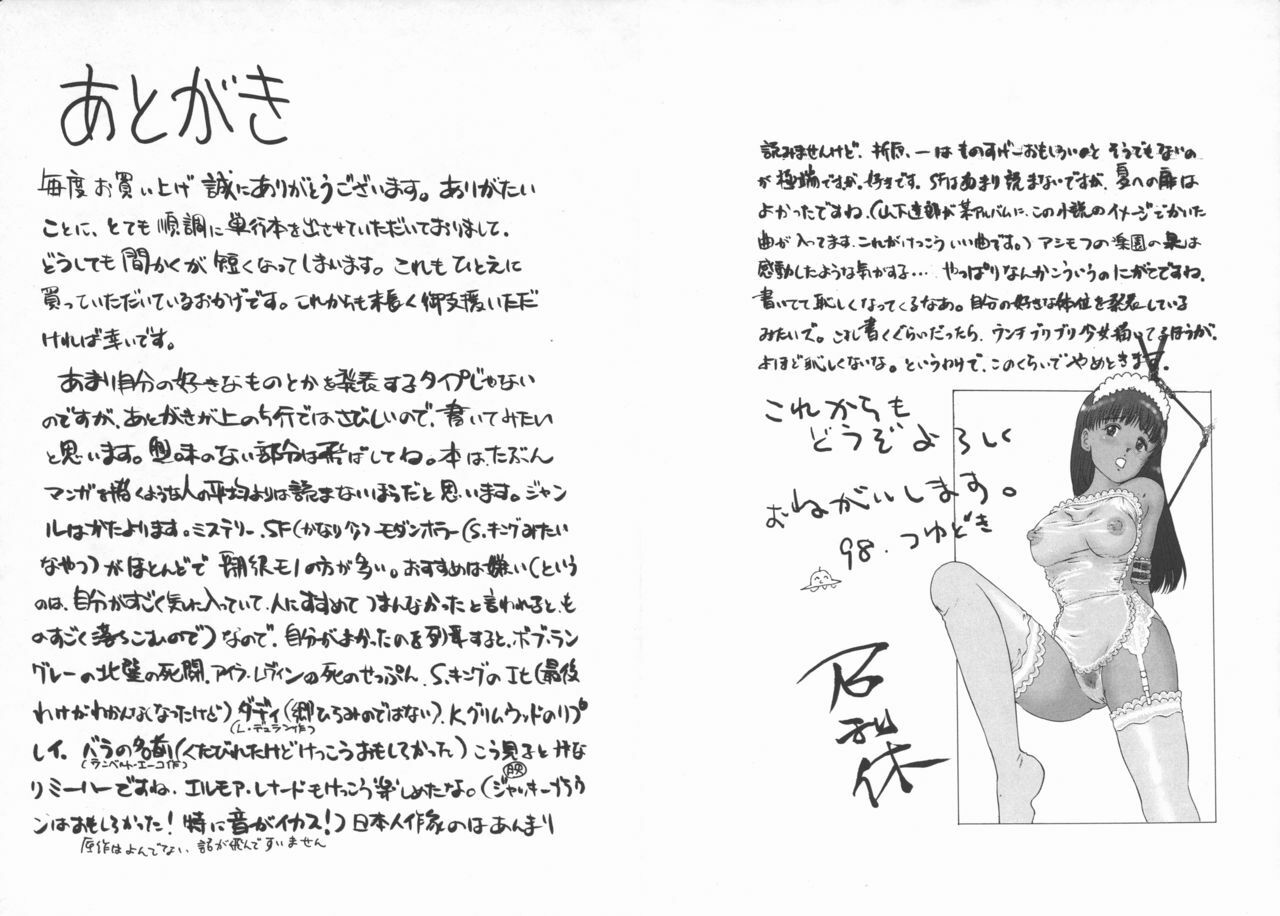 あとがき
毎度お買い上げ誠にありがとうございます。ありがたい
ことに、とても順調に単行本を出させていただいておりまして、
どうしても間かくが短くなってしまいます。これもひとえに
買っていただいているおかげです。これからも末長く御支援いただ
ければ幸いです。
あまり自分の好きなものとかを発表するタイプじゃない
のですが、あとがきが上の5行ではさびしいので、書いてみたい
と思います。興味のない部分は飛ばしてね。本は、たぶん
マンガを描くような人の平均よりは読まないほうだと思います。ジャン
ルはかたよります。ミステリー、SF(かなり少)モダンホラー(S.キングみたい
なやつ)がほとんどで翻訳モノの方が多い。おすすめは嫌い(という
のは、自分がすごく気に入っていて、人にすすめてつまんなかったと言われると、も
のすごく落ちこむので)なので、自分がよかったのを列挙すると、ボブ・ラン
グレーの北壁の死闘、アイラ・レヴィンの死のせっぷん、S.キングのIt(最後
わけがわかんなくなったけど)ダディ(郷ひろみのではない)、K.グリムウッドのリプ
(L・デュラン作)
レイ、バラの名前(くたびれたけどけっこうおもしろかった)こう見ると かな
(ランベルト・エーコ作)
りミーハーですね、エルモア・レナードもけっこう楽しめたな。(ジャッキーブラウ
映
ンはおもしろかった!特に音がイカス!)日本人作家のはあんまり
原作はよんでない 話が飛んですいません
読みませんけど、折原、一はものすげーおもしろいのと そうでもないの
が極端ですが、好きです。SFはあまり読まないですが、夏への扉は
よかったですね、(山下達郎が某アルバムに、この小説のイメージでかいた
曲が入ってます、これがけっこういい曲です。)アシモフの楽園の果は
感動したような気がする… やっぱりなんかこういうのにがてですね、
書いてて恥しくなってくるなあ。自分の好きな体位を発表している
みたいで。これ書くぐらいだったら、ウンチブリブリ少女描いてるほうが、
よほど恥しくないな。というわけで、このくらいでやめときます。
これからも
どうぞよろしく
おねがいします。
98.つゆどき